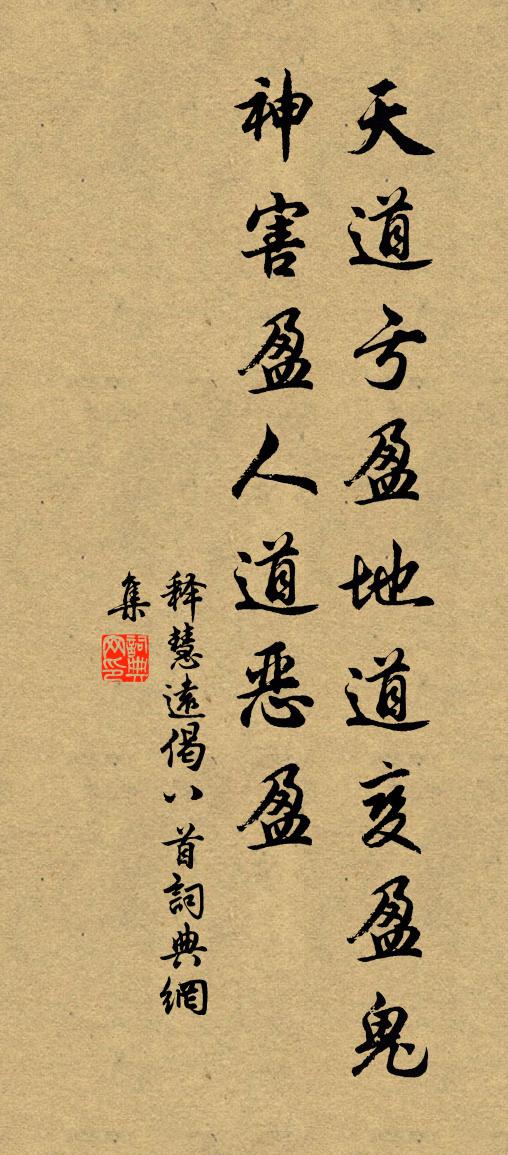 天道亏盈地道变盈鬼
神害盈人道恶盈
释慧遠偈八首詞典網
集
詞典网印